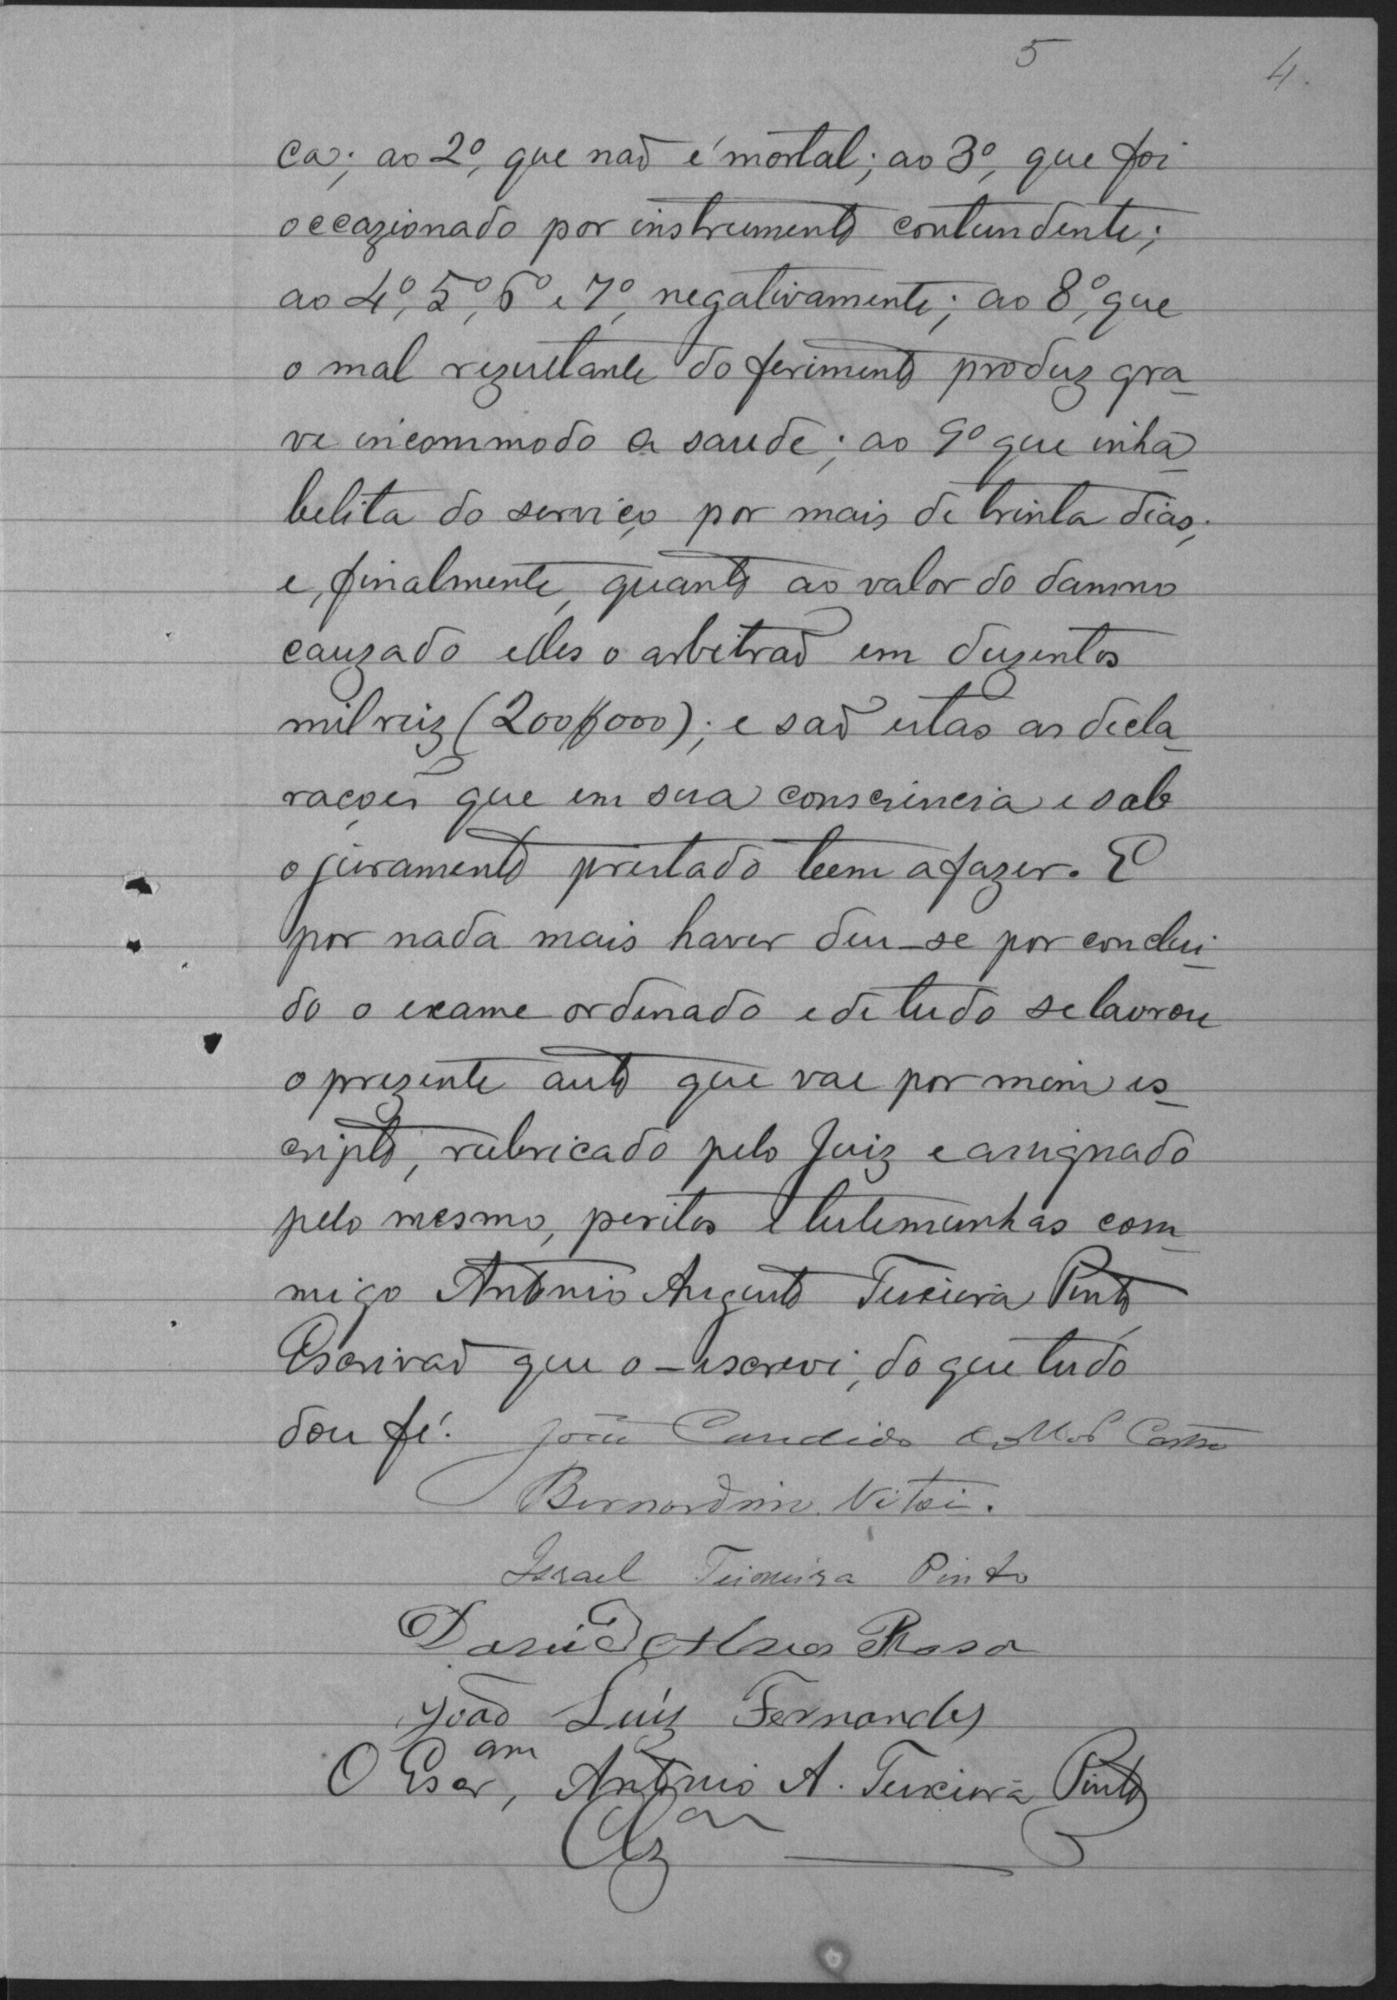 5 4.
ca; ao 2º, que naõ é mortal; ao 3º, que foi
occazionado por instrumento contundente;
ao 4º, 5º, 6º e 7º, negativamente; ao 8º, que
o mal rezultante do ferimento produz gra-
ve incommodo a saude; ao 9º que inha-
belita do serviço por mais de trinta dias;
e, finalmente, quanto ao valor do damno
cauzado elles o arbitraõ em duzentos
mil reiz (200$000); e saõ estas as decla-
raçoẽs que em sua consciencia e sob
o juramento prestado teem a fazer. E
por nada mais haver deu-se por conclui-
do o exame ordenado e de tudo se lavrou
o prezente auto que vae por mim es-
cripto, rubricado pelo Juiz e assignado
pelo mesmo, peritos e testemunhas com-
migo Antonio Augusto Teixeira Pinto
Escrivaõ que o-escrevi, do que tudo
dou fé. João Candido Castro
Bernardino
Israel Teixeira Pinto
David Rosa
João Luiz Fernandes
O Escr.am, Antonio A. Teixeira Pinto